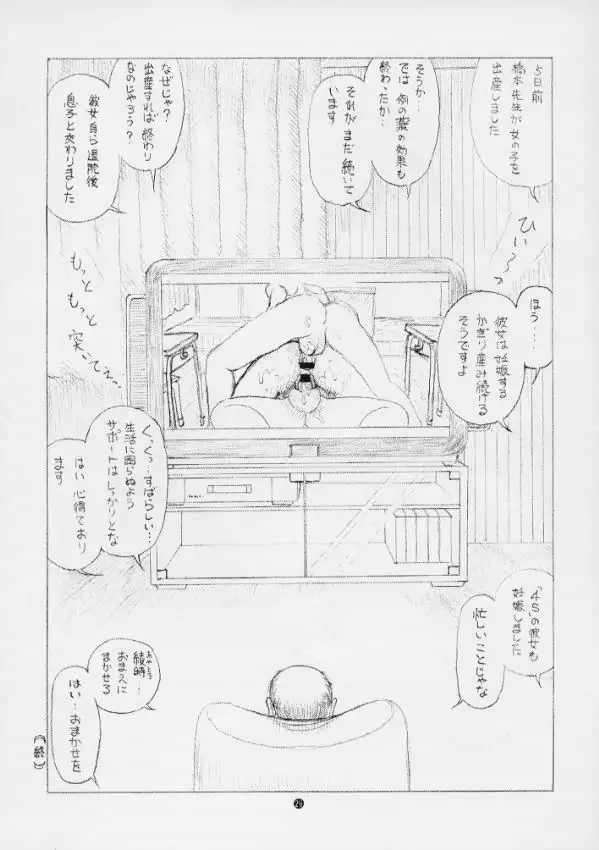 5日前
橋本先生が女の子を
出産しました
そうか…
では例の薬の効果も
終わったか…
それがまだ続いて
います
なぜじゃ?
出産すれば終わり
なのじゃろう?
彼女自ら退院後
息子と交わりました
ひぃ〜っ
もっと
もっと
突いてぇ…
ほう…
彼女は妊娠する
かぎり産み続ける
そうですよ
くっくっ…すばらしい…
生活に困らぬよう
サポートはしっかりとな
はい 心得ており
ます
「4S」の彼女も
妊娠しました
忙しいことじゃな
綾時…
おまえに
まかせる
はい…おまかせを
(終)
26